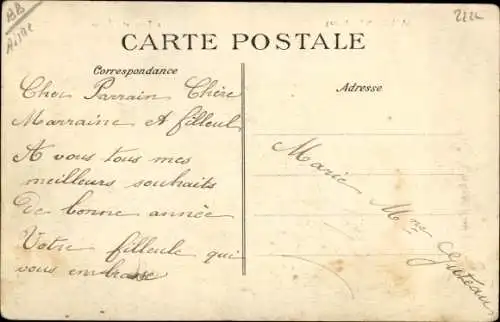 BB
Aisne
CARTE POSTALE
Correspondance
Adresse
Cher Parrain Chère
Marraine et filleul
A vous tous mes
meilleurs souhaits
De bonne année
Votre filleule qui
vous embrasse
Marie Mme